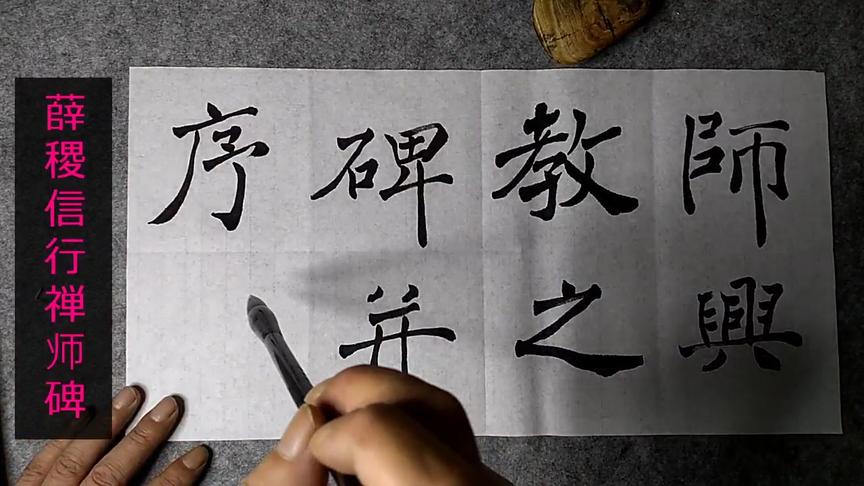 薛稷信行禅师碑
師興
教之
碑并
序